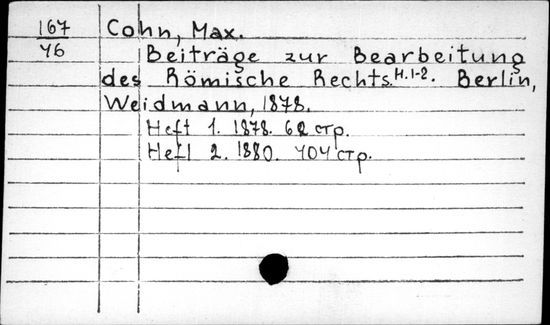 167 Cohn, Max.
46 Beiträge zur Bearbeitung
des Römische Rechts. H. 1-2. Berlin,
Weidmann, 1878.
Heft 1. 1878. 62 стр.
Heft 2. 1880. 404 стр.